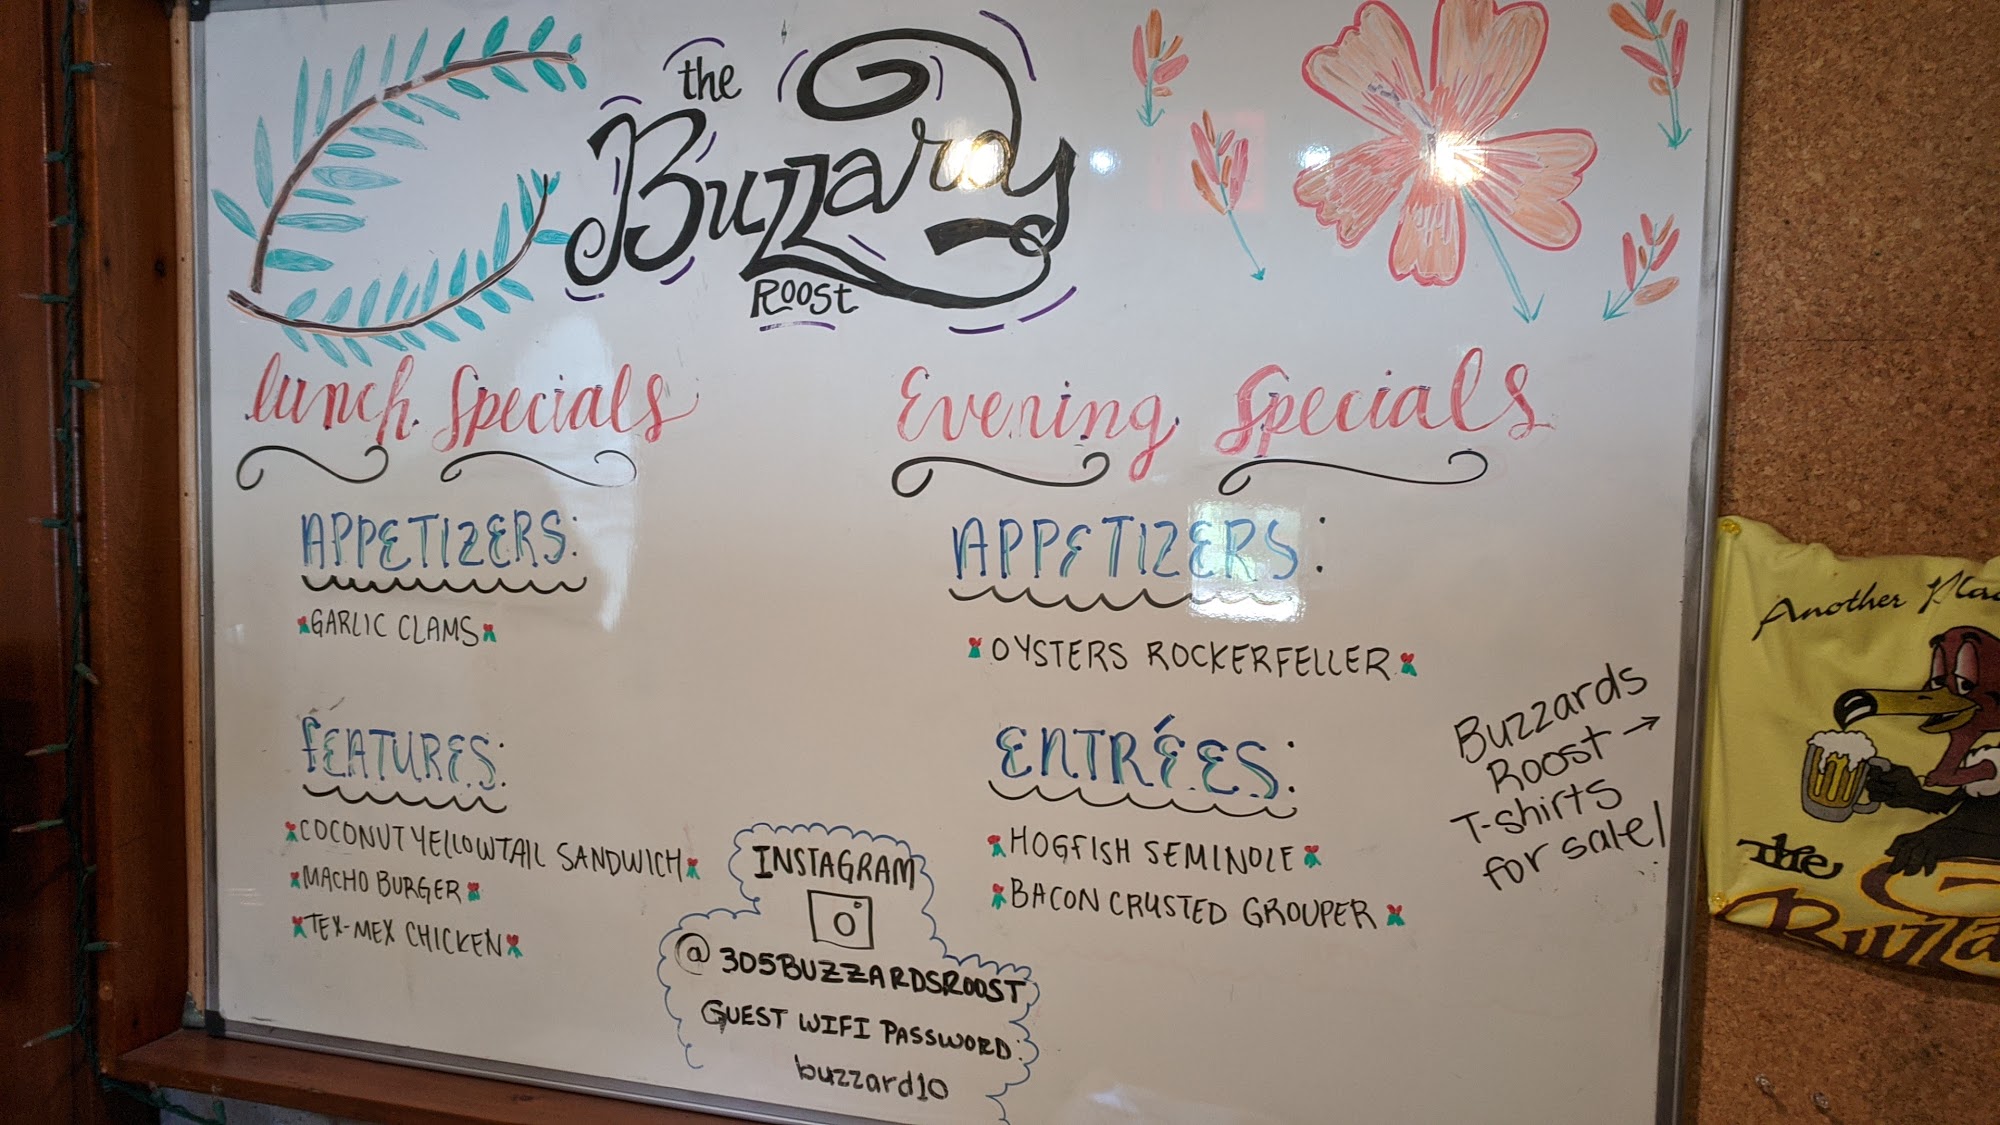 the
Buzzards
Roost
lunch Specials
APPETIZERS:
GARLIC CLAMS
FEATURES:
COCONUT YELLOWTAIL SANDWICH
MACHO BURGER
TEX-MEX CHICKEN
Evening Specials
APPETIZERS:
OYSTERS ROCKERFELLER
ENTRÉES:
HOGFISH SEMINOLE
BACON CRUSTED GROUPER
INSTAGRAM
@305BUZZARDSROOST
GUEST WIFI PASSWORD:
buzzard10
Buzzards
Roost →
T-shirts
for sale!
Another
The